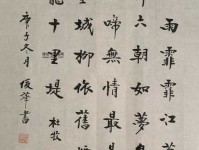 雨霏霏江草
六朝如夢鳥
啼無情最是
城柳依舊
十里堤 杜牧
庚子冬月 俊華書